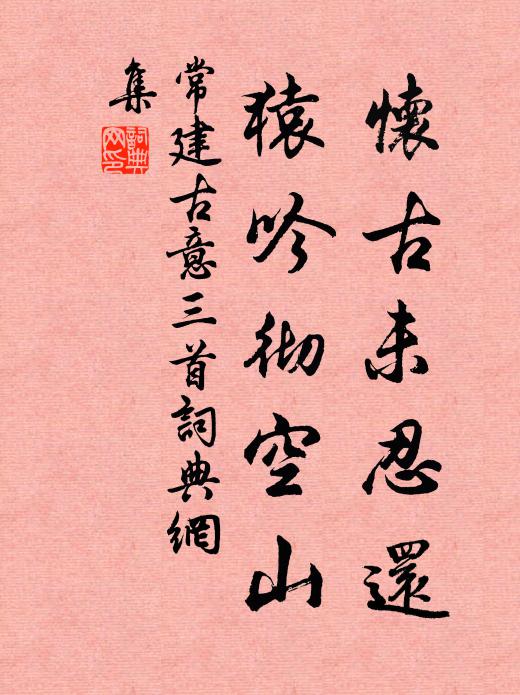 懷古未忍還
猿吟彻空山
常建古意三首詞典網
集
詞典
网印